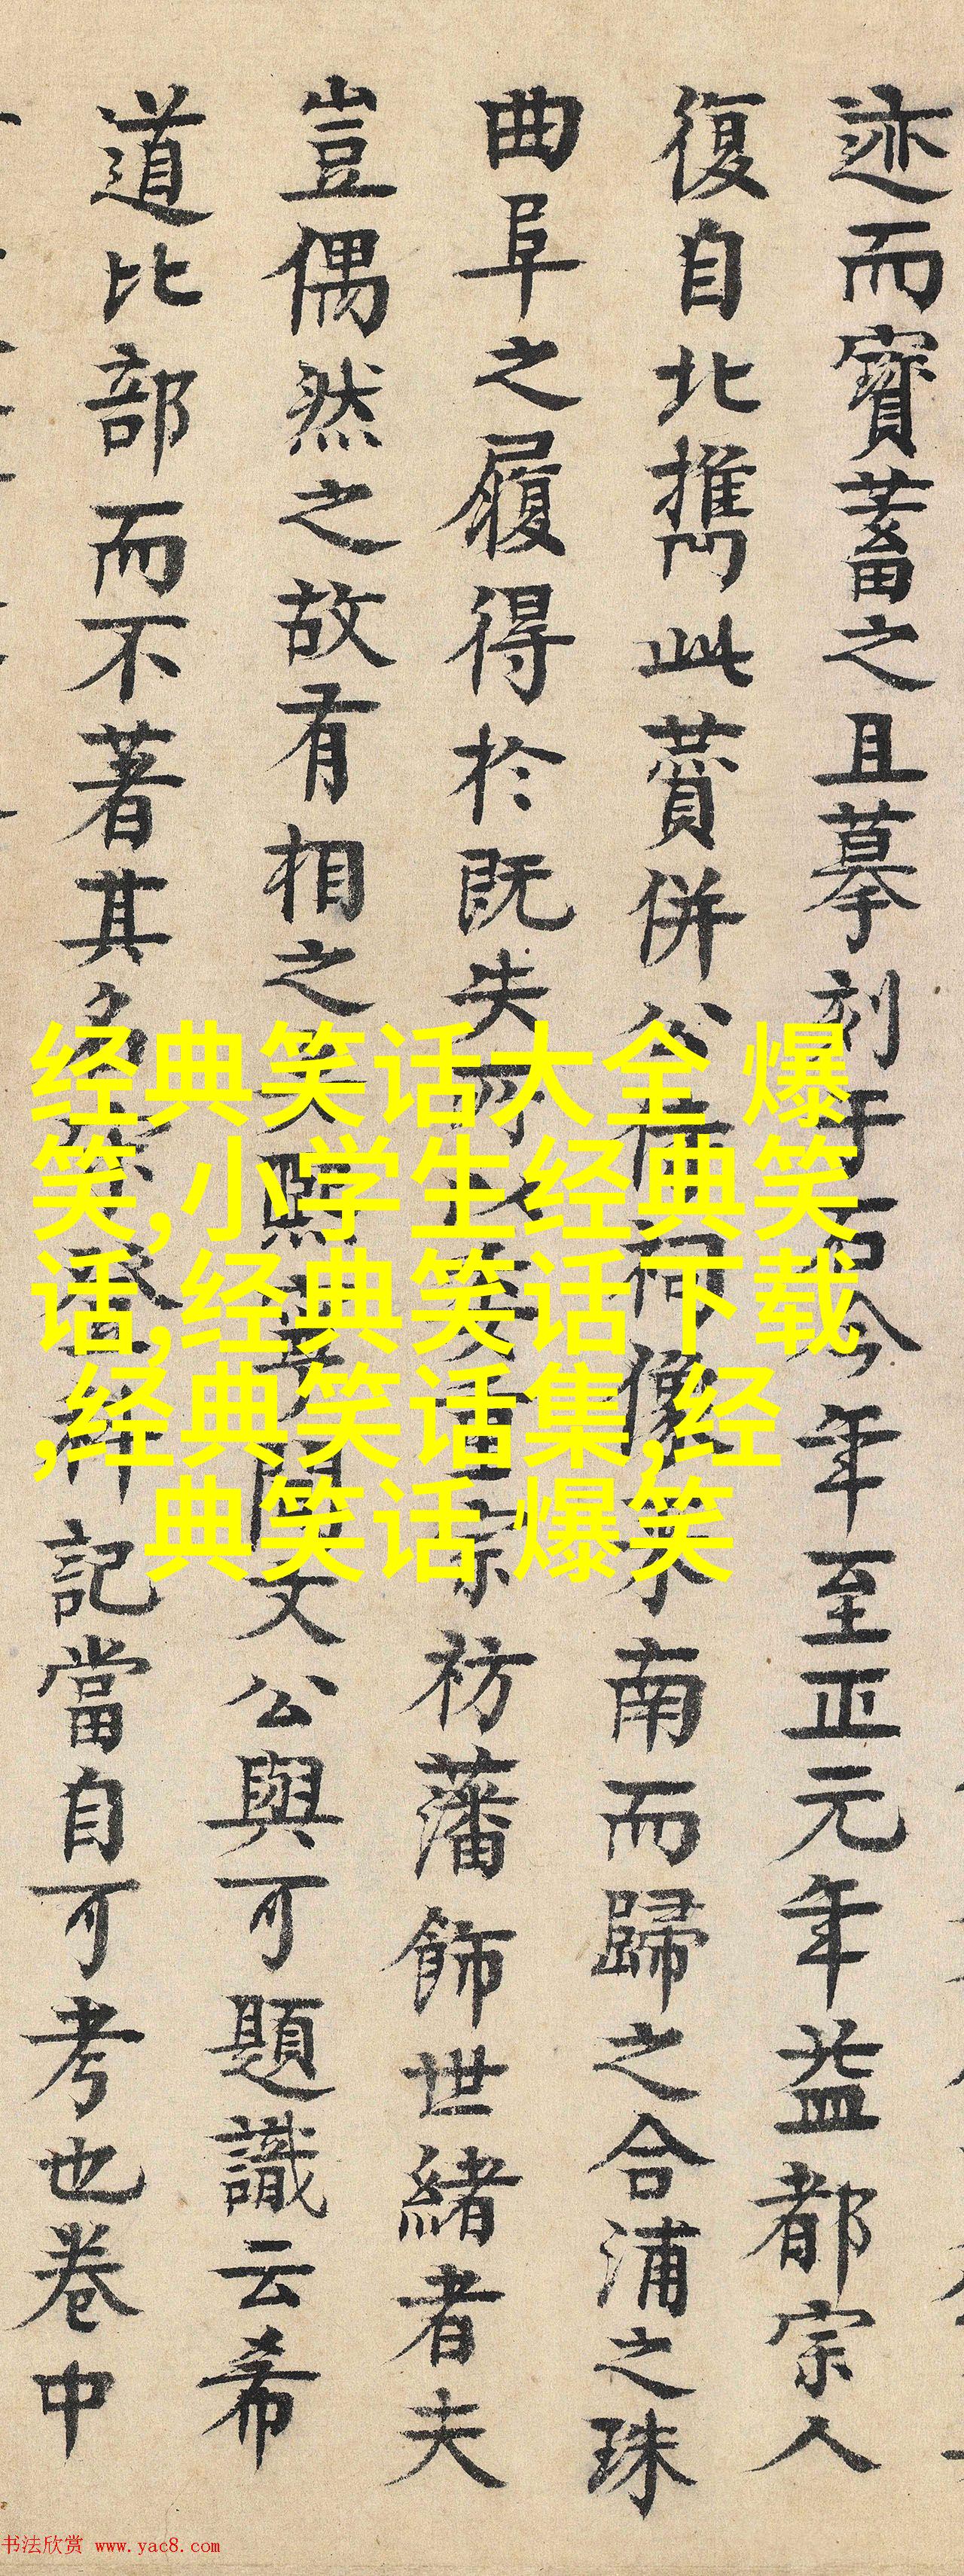 迹而寳蓄之且摹刻于石今年至正元年益都宗人
復自北攜此併公祠像来南而歸之合浦之珠
曲阜之履得於既失所以宗祊藩飾世緒者夫
豈偶然之故有相之矣照文公與可題識云希
道比部而不著其名記當自可考也卷中
经典笑话大全 爆
笑,小学生经典笑
话,经典笑话下载
,经典笑话集,经
典笑话 爆笑
书法欣赏 www.yac8.com